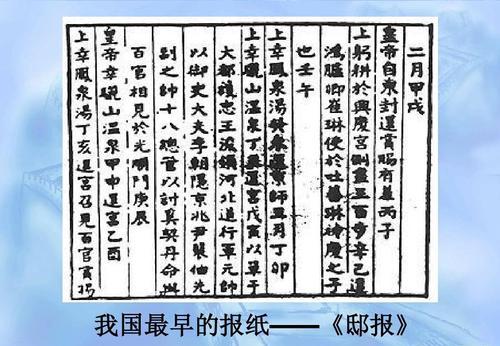 二月甲戌
皇帝自東封還賞賜有差丙子
上躬耕於興慶宮側盡三百步辛巳遣
鴻臚卿崔琳使於吐蕃琳神慶之子
也壬午
上幸鳳泉湯癸未還京師丑月丁卯
上幸驪山溫泉丁丑還宮戊寅以單于
大都護忠王浚領河北道行軍元帥
以御史大夫李朝隱京兆尹裴伷先
副之帥十八總管以討奚契丹命與
百官相見於光順門庚辰
皇帝幸驪山溫泉甲申還宮乙酉
上幸鳳泉湯丁亥還宮召見百官賞賜
我国最早的报纸——《邸报》